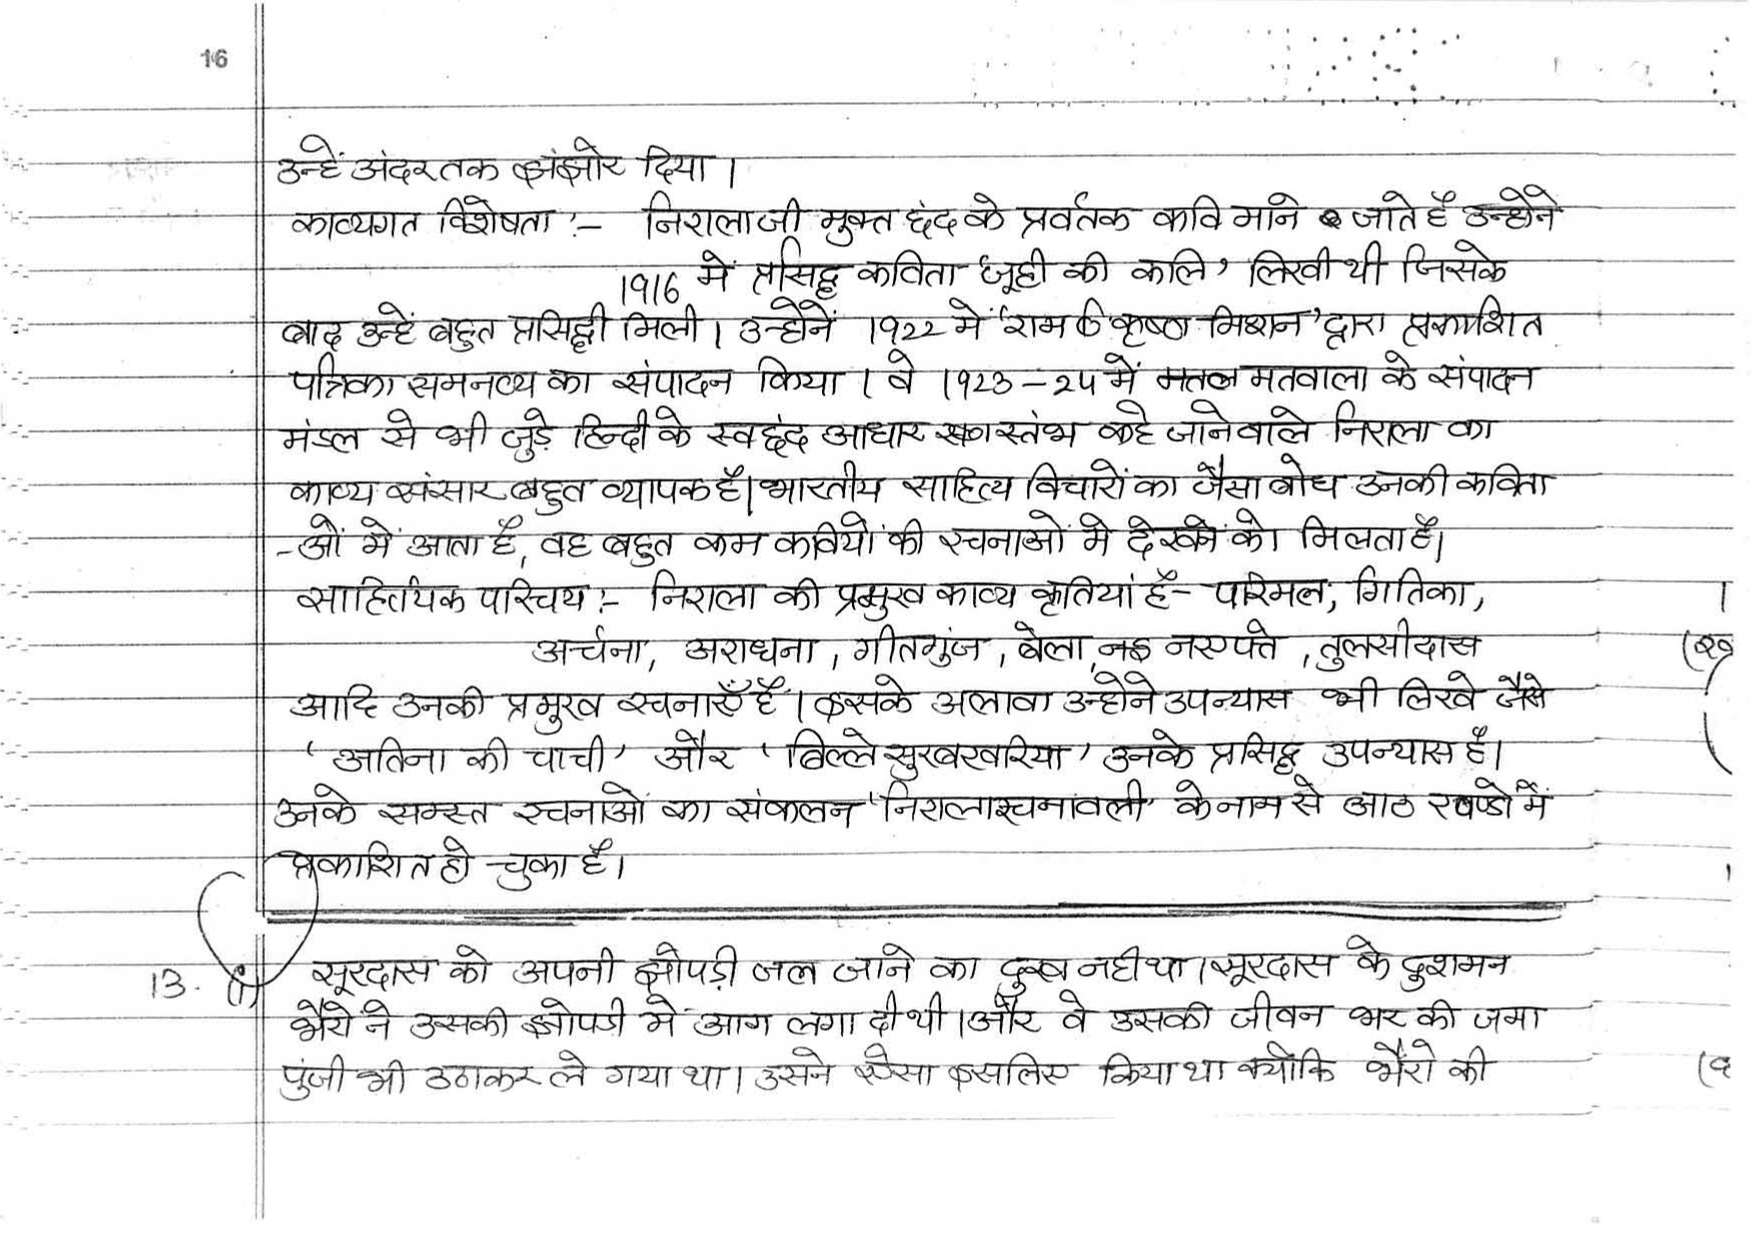 16
उन्हें अंदर तक झंझोर दिया।
काव्यगत विशेषता :- निरालाजी मुक्त छंद के प्रर्वतक कवि माने जाते है उन्होने
1916 में प्रसिद्ध कविता 'जूही की कलि' लिखी थी जिसके
बाद उन्हें बहुत प्रसिद्धी मिली। उन्होनें 1922 में 'राम कृष्ण मिशन' द्वारा प्रकाशित
पत्रिका समनव्य का संपादन किया। वे 1923-24 में मतवाला के संपादन
मंडल से भी जुड़े हिन्दी के स्वछंद आधार स्तंभ कहे जाने वाले निराला का
काव्य संसार बहुत व्यापक है। भारतीय साहित्य विचारों का जैसा बोध उनकी कविता
-ओं में आता है, वह बहुत कम कवियों की रचनाओं मे देखने को मिलता है।
साहित्यिक परिचय :- निराला की प्रमुख काव्य कृतियां है- परिमल, गितिका,
अर्चना, अराधना, गीतगुंज, बेला, नए पत्ते, तुलसीदास
आदि उनकी प्रमुख रचनाएँ है। इसके अलावा उन्होने उपन्यास भी लिखे जैसे
'अतिना की चाची' और 'बिल्लेसुरखरिया' उनके प्रसिद्ध उपन्यास है।
उनके समस्त रचनाओं का संकलन 'निराला रचनावली' के नाम से आठ खण्डो में
प्रकाशित हो चुका है।
13. (i) सूरदास को अपनी झोपड़ी जल जाने का दुख नही था। सूरदास के दुशमन
भैरो ने उसकी झोपडी मे आग लगा दी थी। और वे उसकी जीवन भर की जमा
पुंजी भी उठाकर ले गया था। उसने ऐसा इसलिए किया था क्योकि भैरो की